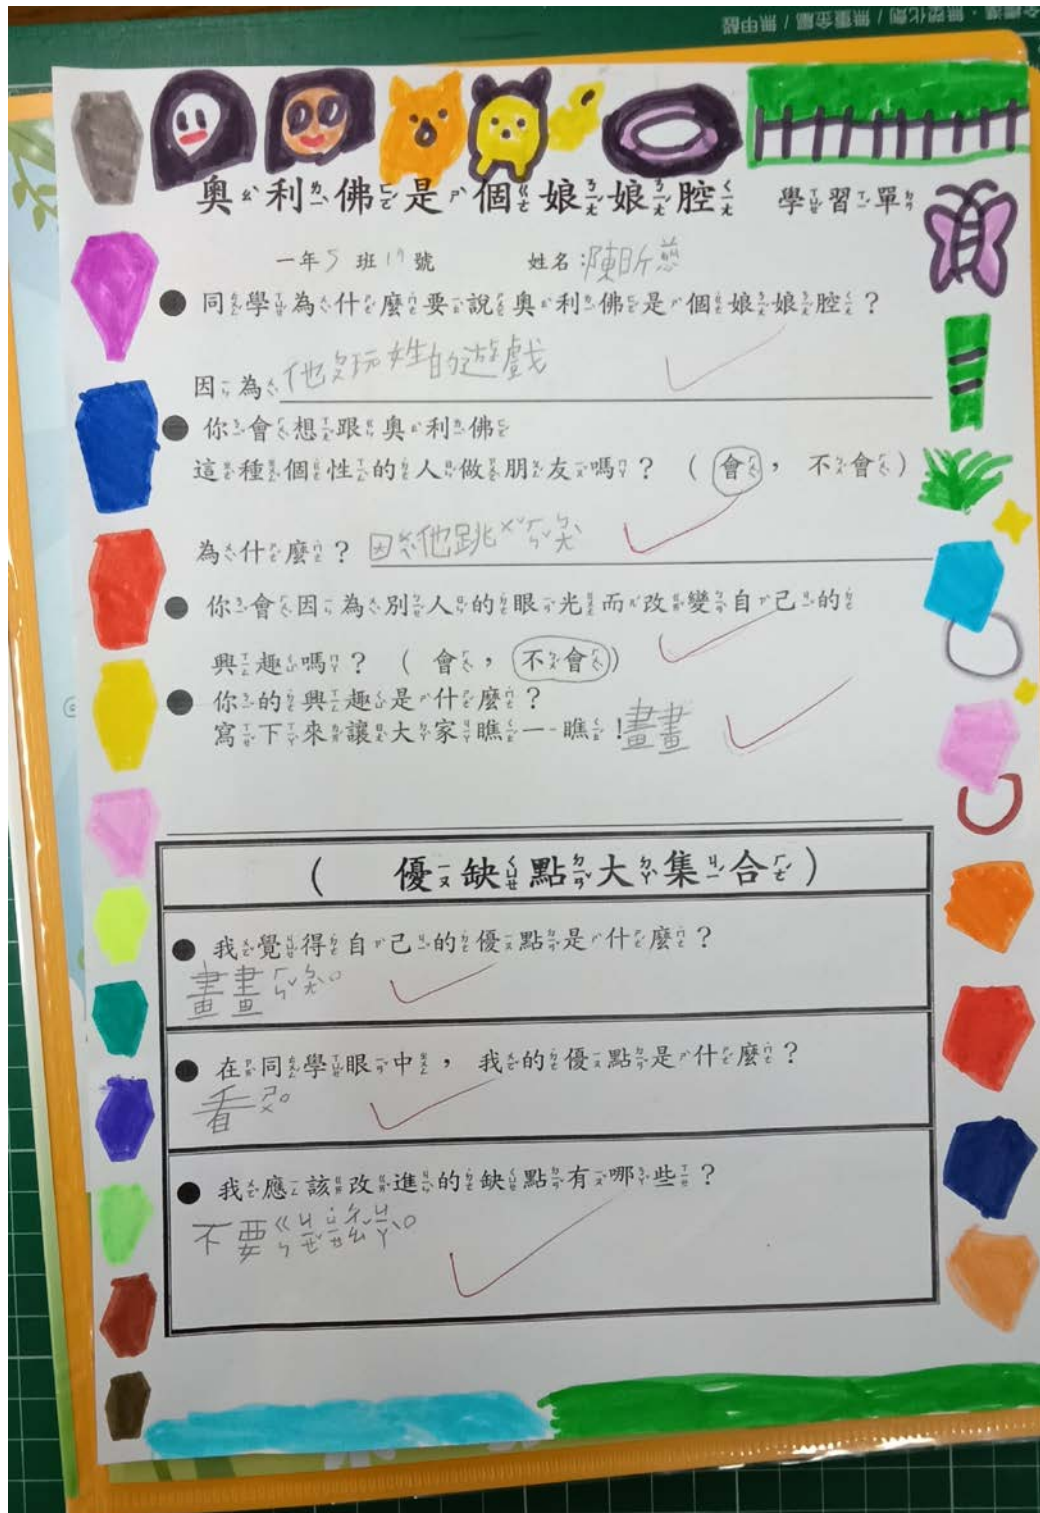 無甲醛 / 無重金屬 / 無塑化劑
奧利佛是個娘娘腔 學習單
一年5班17號 姓名:陳昕慈
●同學為什麼要說奧利佛是個娘娘腔?
因為他ㄨㄢˊ玩姓的遊戲
●你會想跟奧利佛
這種個性的人做朋友嗎?(會,不會)
為什麼?因為他跳ㄨˇㄏㄣˇㄅㄤˋ
●你會因為別人的眼光而改變自己的
興趣嗎?(會,不會)
●你的興趣是什麼?
寫下來讓大家瞧一瞧!畫畫
( 優缺點大集合 )
●我覺得自己的優點是什麼?
畫畫ㄏㄣˇㄅㄤˋ。
●在同學眼中,我的優點是什麼?
看ㄕㄨ。
●我應該改進的缺點有哪些?
不要ㄍㄣ